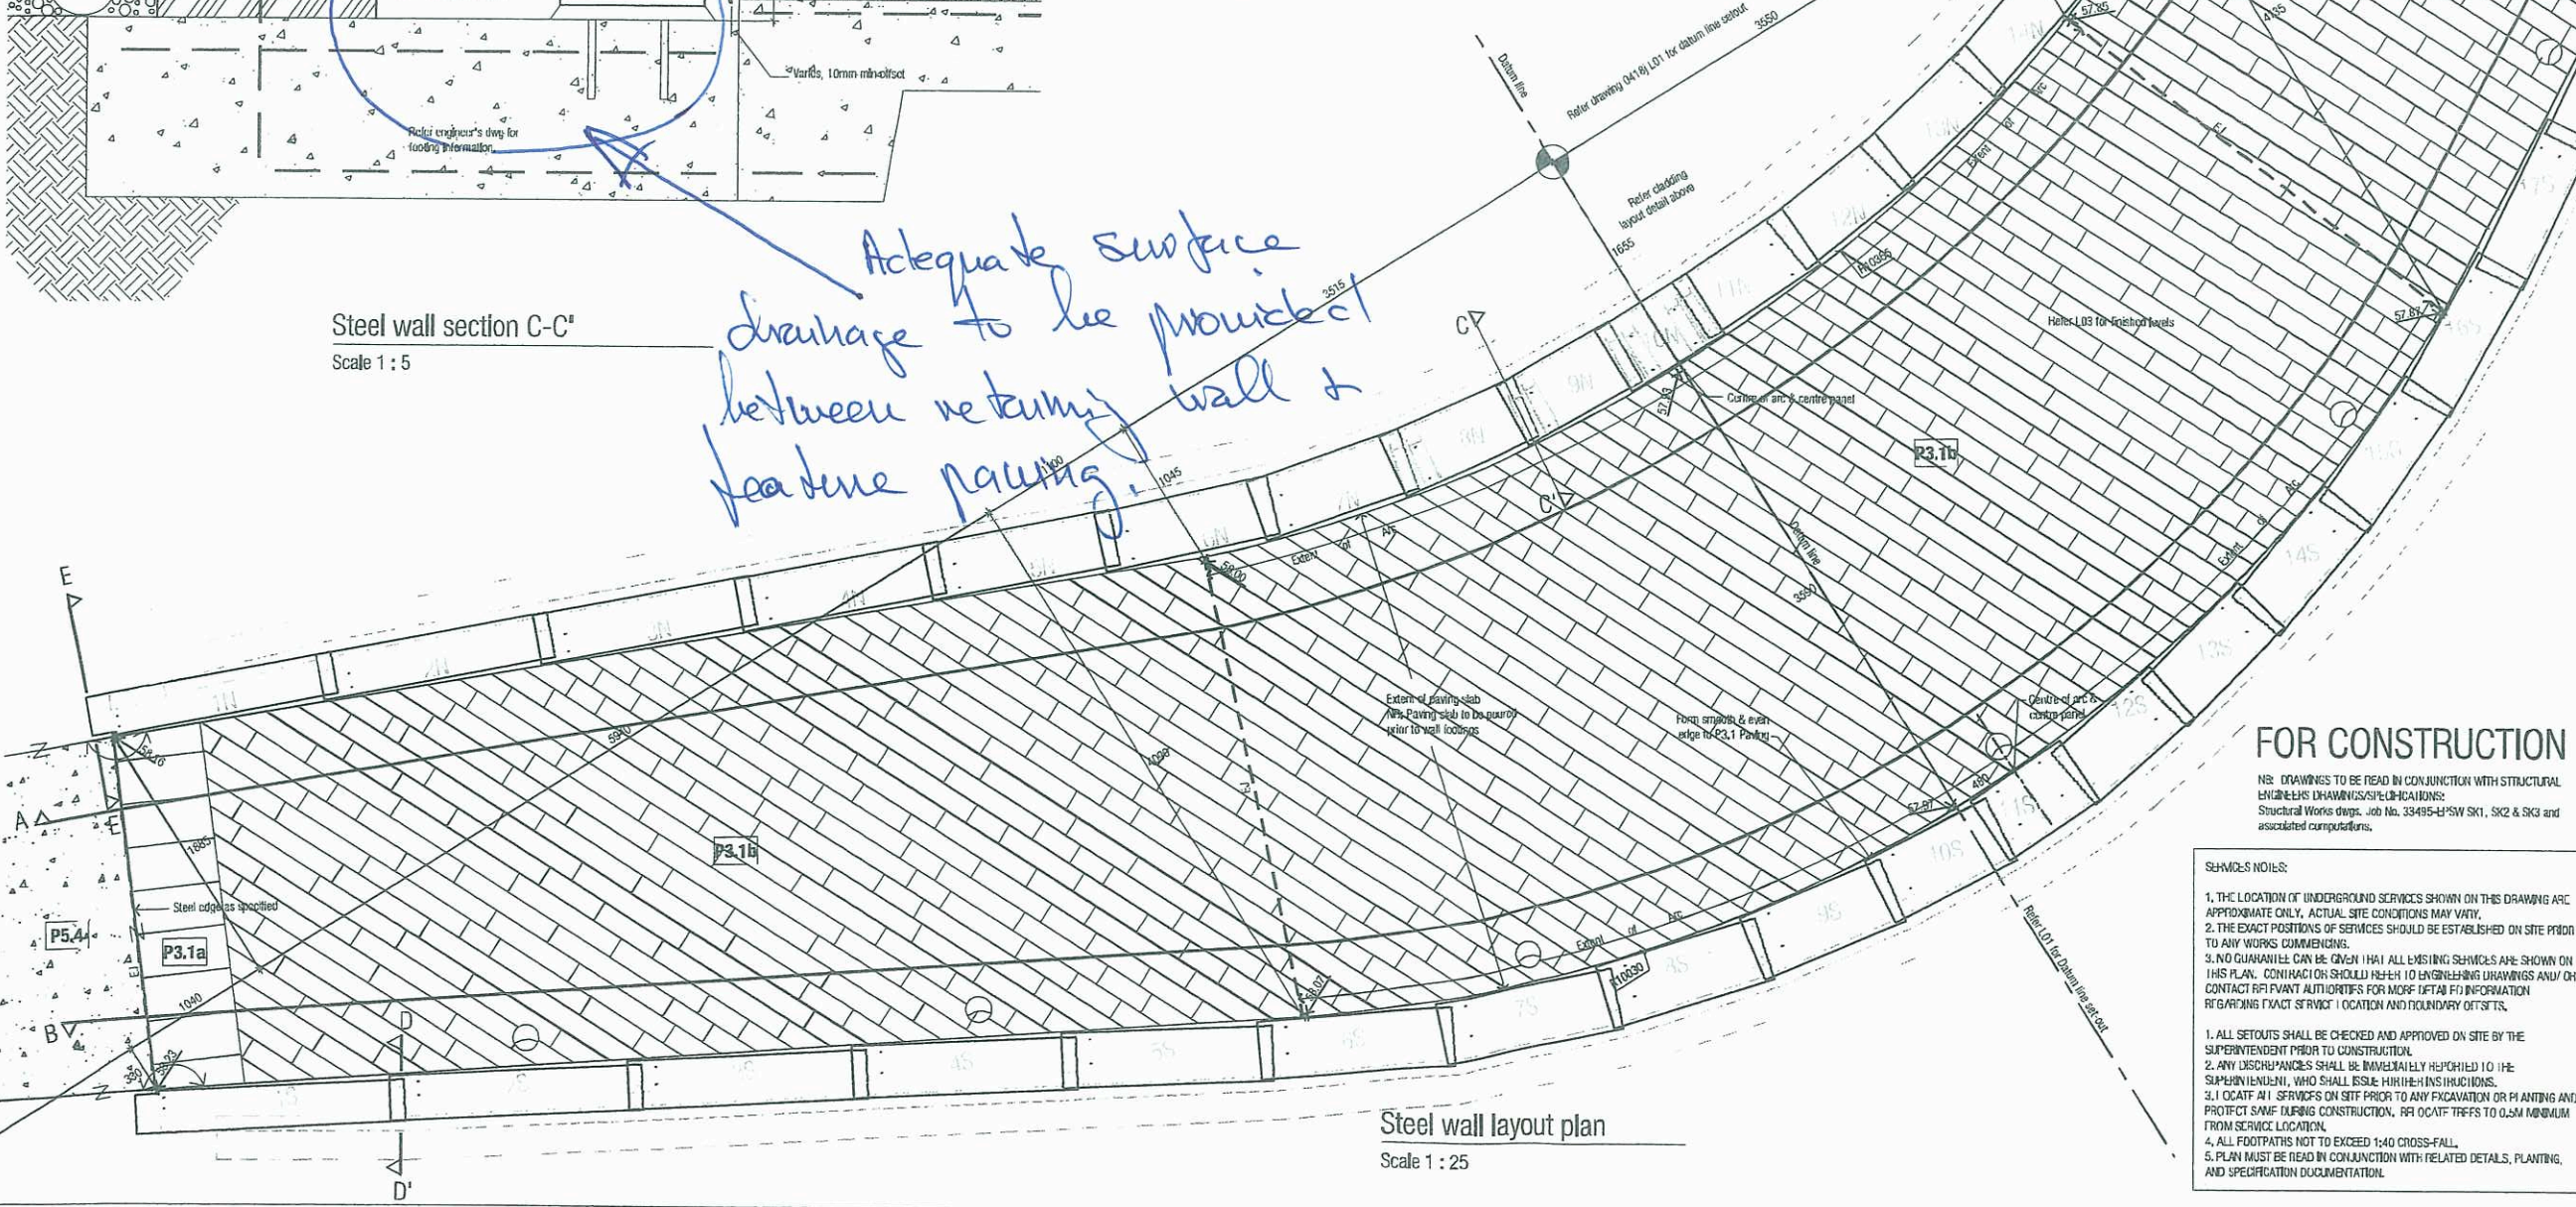 Varies, 10mm min offset
Refer engineer's dwg for
footing information.
Steel wall section C-C'
Scale 1 : 5
Adequate surface
drainage to be provided
between retaining wall &
feature paving.
Datum line
Refer drawing 0418j L01 for datum line setout
3550
Refer cladding
layout detail above
1655
3515
C
C'
1100
1045
57.85
4135
57.87
57.93
Centre of arc & centre panel
Refer L03 for finished levels
P3.1b
Extent of Arc
Extent of Arc
58.00
Datum line
3590
Extent of paving slab
NB: Paving slab to be poured
prior to wall footings
Form smooth & even
edge to P3.1 Paving
Centre of arc &
centre panel
480
57.97
Extent of Arc
Extent of Arc
R10030
4098
5910
E
E'
A
B
1N
2N
3N
4N
5N
6N
7N
8N
9N
10N
11N
12N
13N
14N
58.16
1885
Steel edge as specified
P5.4
P3.1a
P3.1b
1040
330
D
D'
4S
5S
6S
7S
8S
9S
10S
11S
12S
13S
14S
15S
16S
17S
58.07
Refer L01 for Datum line set-out
Steel wall layout plan
Scale 1 : 25
FOR CONSTRUCTION
NB: DRAWINGS TO BE READ IN CONJUNCTION WITH STRUCTURAL
ENGINEERS DRAWINGS/SPECIFICATIONS:
Structural Works dwgs. Job No. 33495-LPSW SK1, SK2 & SK3 and
associated computations.
SERVICES NOTES:
1. THE LOCATION OF UNDERGROUND SERVICES SHOWN ON THIS DRAWING ARE
APPROXIMATE ONLY. ACTUAL SITE CONDITIONS MAY VARY.
2. THE EXACT POSITIONS OF SERVICES SHOULD BE ESTABLISHED ON SITE PRIOR
TO ANY WORKS COMMENCING.
3. NO GUARANTEE CAN BE GIVEN THAT ALL EXISTING SERVICES ARE SHOWN ON
THIS PLAN. CONTRACTOR SHOULD REFER TO ENGINEERING DRAWINGS AND/ OR
CONTACT RELEVANT AUTHORITIES FOR MORE DETAILED INFORMATION
REGARDING EXACT SERVICE LOCATION AND BOUNDARY OFFSETS.
1. ALL SETOUTS SHALL BE CHECKED AND APPROVED ON SITE BY THE
SUPERINTENDENT PRIOR TO CONSTRUCTION.
2. ANY DISCREPANCIES SHALL BE IMMEDIATELY REPORTED TO THE
SUPERINTENDENT, WHO SHALL ISSUE FURTHER INSTRUCTIONS.
3. LOCATE ALL SERVICES ON SITE PRIOR TO ANY EXCAVATION OR PLANTING AND
PROTECT SAME DURING CONSTRUCTION. RELOCATE TREES TO 0.5M MINIMUM
FROM SERVICE LOCATION.
4. ALL FOOTPATHS NOT TO EXCEED 1:40 CROSS-FALL.
5. PLAN MUST BE READ IN CONJUNCTION WITH RELATED DETAILS, PLANTING,
AND SPECIFICATION DOCUMENTATION.